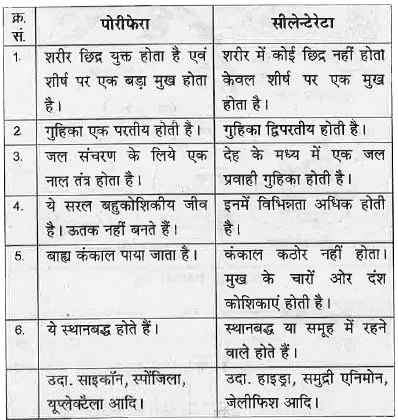 क्र. सं. पोरीफेरा सीलेन्टेरेटा
1. शरीर छिद्र युक्त होता है एवं
शीर्ष पर एक बड़ा मुख होता
है।
शरीर में कोई छिद्र नहीं होता
केवल शीर्ष पर एक मुख
होता है।
2. गुहिका एक परतीय होती है।
गुहिका द्विपरतीय होती है।
3. जल संचरण के लिये एक
नाल तंत्र होता है।
देह के मध्य में एक जल
प्रवाही गुहिका होती है।
4. ये सरल बहुकोशिकीय जीव
है। ऊतक नहीं बनते हैं।
इनमें विभिन्नता अधिक होती
है।
5. बाह्य कंकाल पाया जाता है।
कंकाल कठोर नहीं होता।
मुख के चारों ओर दंश
कोशिकाएं होती है।
6. ये स्थानबद्ध होते हैं।
स्थानबद्ध या समूह में रहने
वाले होते हैं।
उदा. साइकॉन, स्पोंजिला,
यूप्लेक्टैला आदि।
उदा. हाइड्रा, समुद्री एनिमोन,
जेलीफिश आदि।